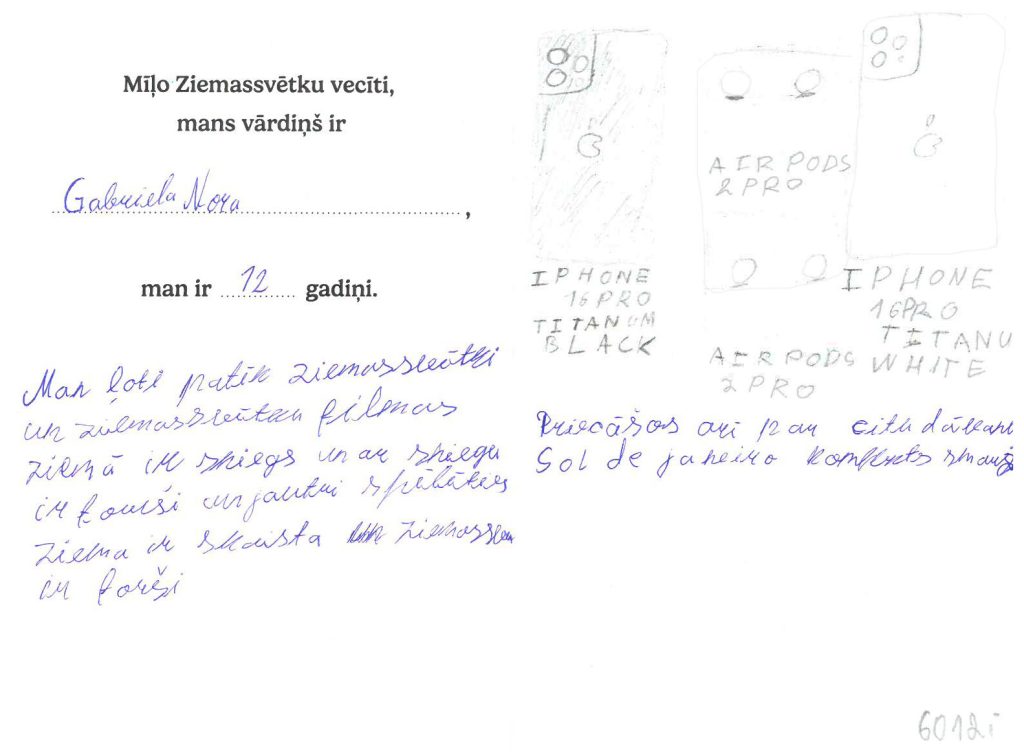 Mīļo Ziemassvētku vecīti,
mans vārdiņš ir
Gabriela Nora,
man ir 12 gadiņi.
Man ļoti patīk ziemassvētki
un ziemassvētku filmas
ziemā ir sniegs un ar sniegu
ir forši un jautri spēlēties
ziema ir skaista
ir forši
IPHONE
16 PRO
TITANUM
BLACK
AIR PODS
2 PRO
AIR PODS
2 PRO
IPHONE
16 PRO
TITANU
WHITE
Priecāšos arī par citu dāvanu
Sol de janeiro komplekts
6012i